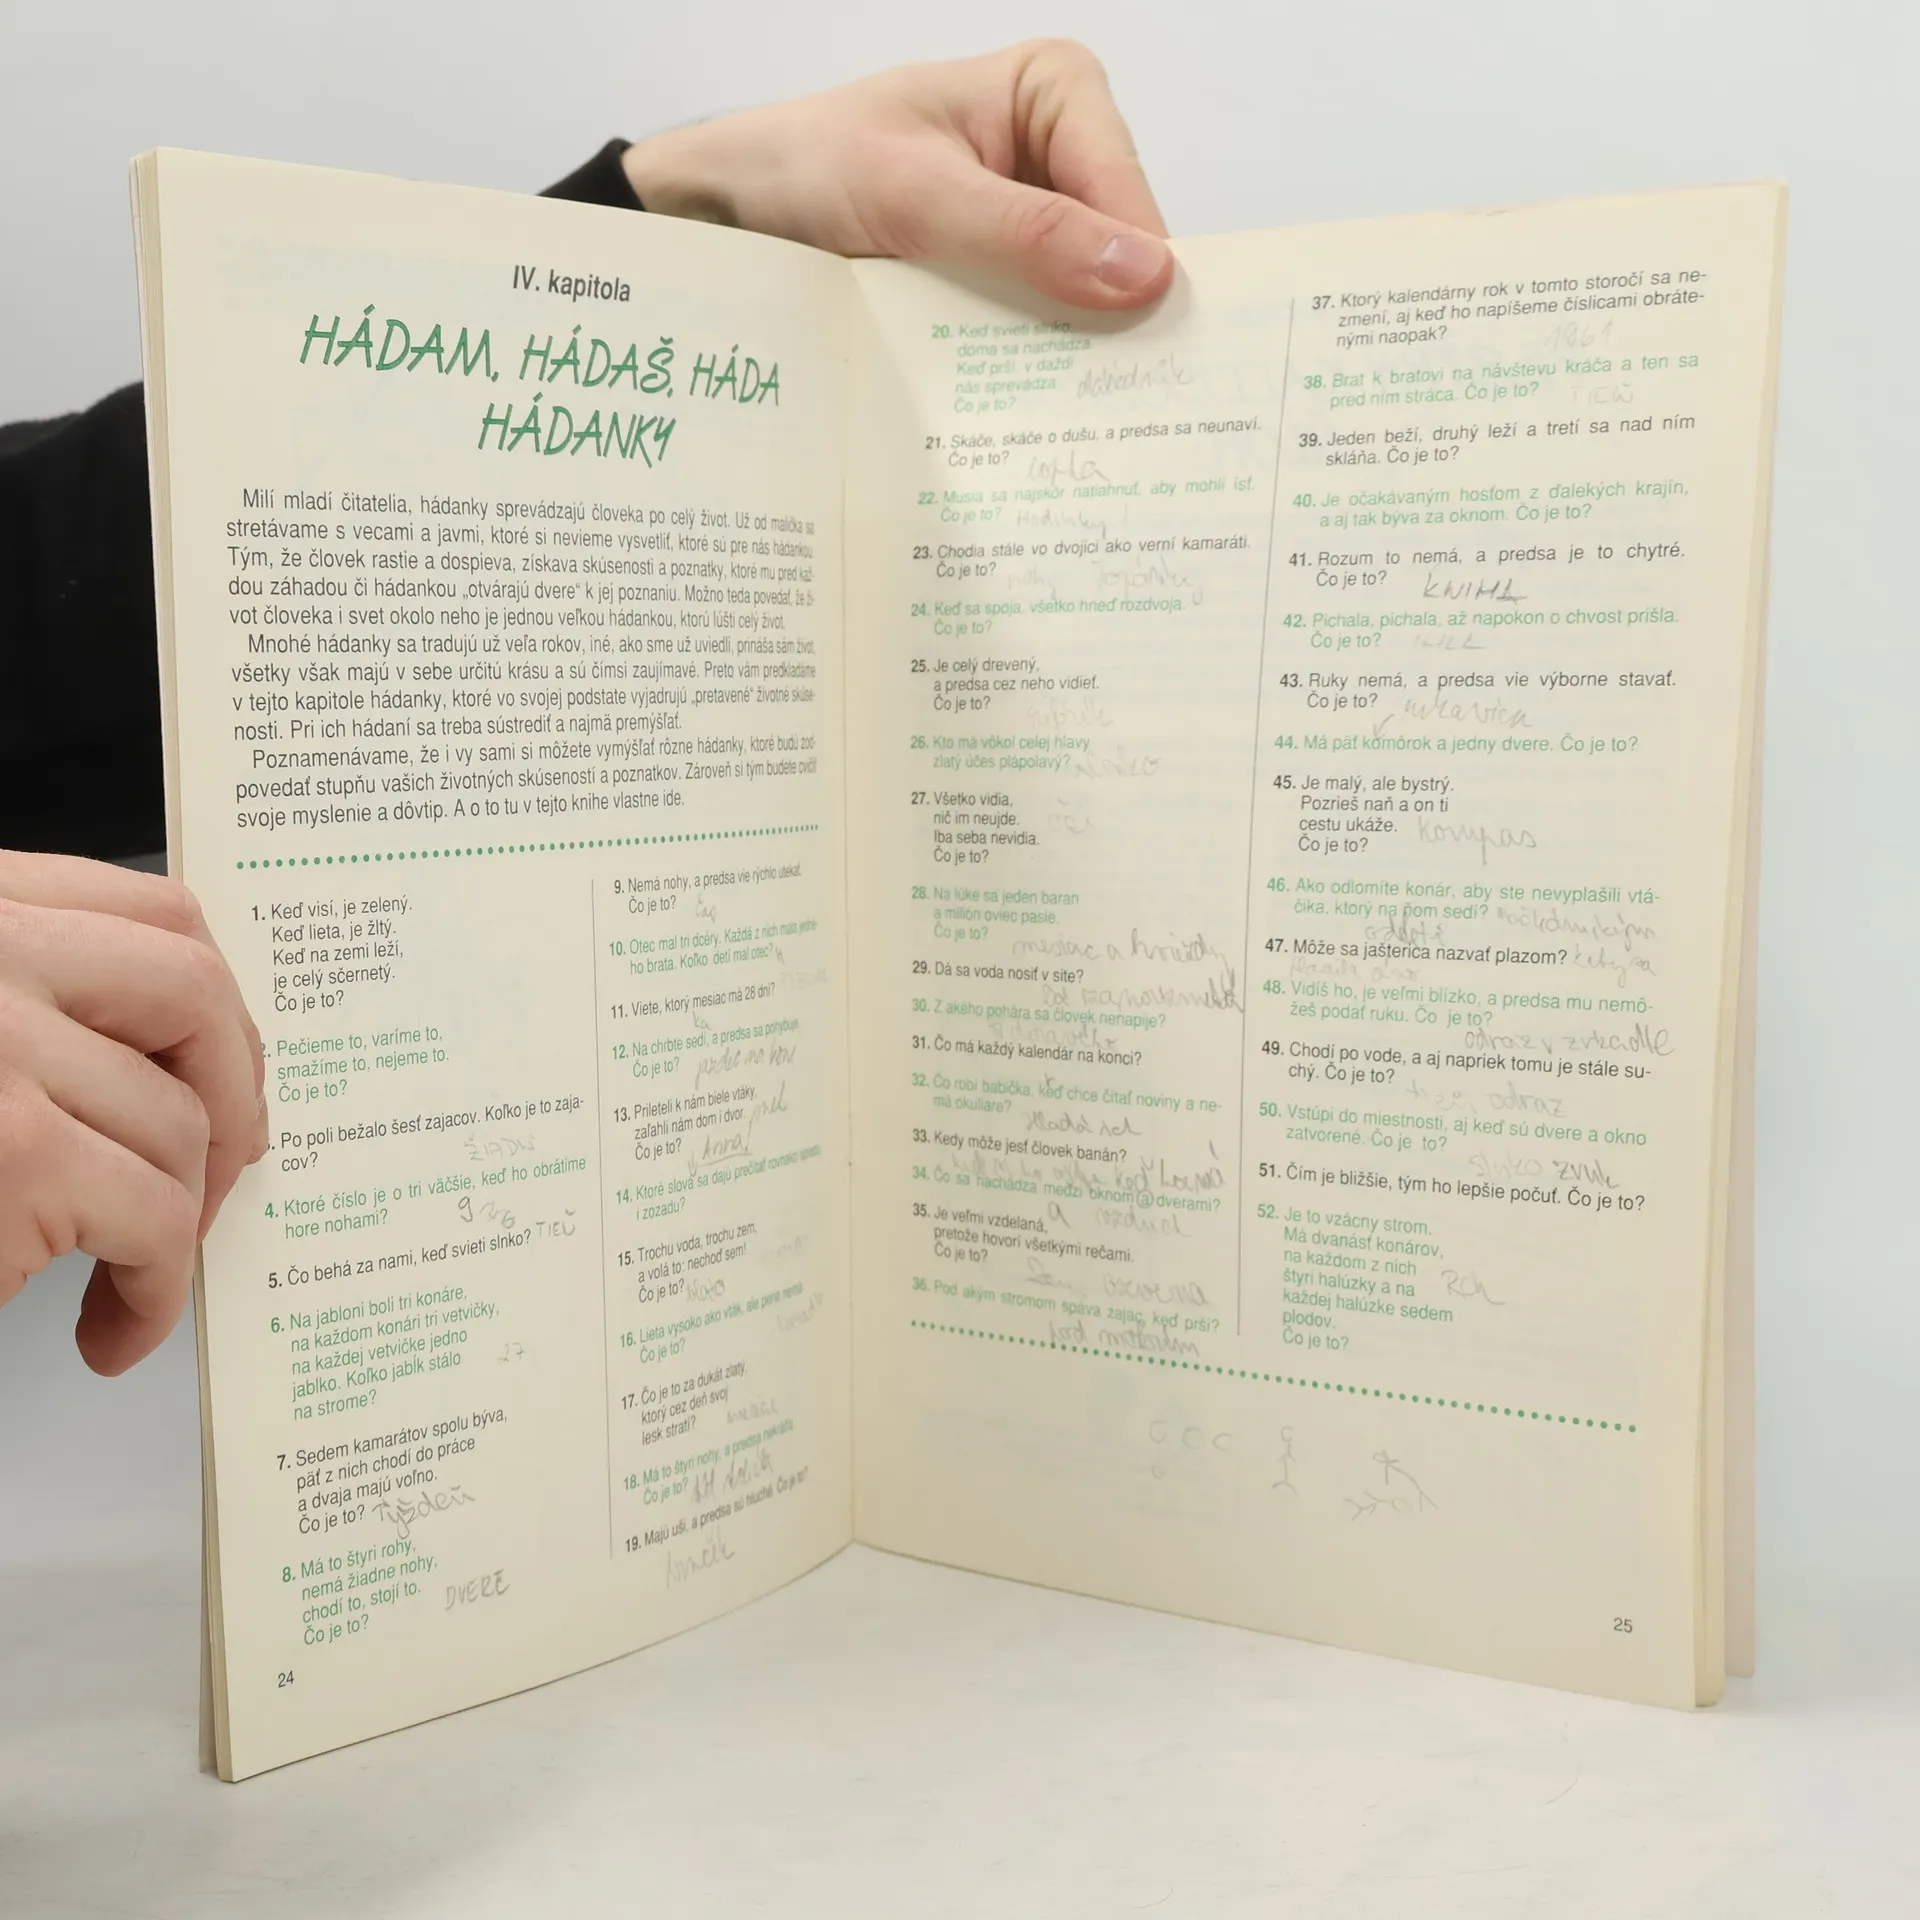 IV. kapitola
HÁDAM, HÁDAŠ, HÁDA
HÁDANKY
Milí mladí čitatelia, hádanky sprevádzajú človeka po celý život. Už od malička sa
stretávame s vecami a javmi, ktoré si nevieme vysvetliť, ktoré sú pre nás hádankou
Tým, že človek rastie a dospieva, získava skúsenosti a poznatky, ktoré mu pred kaž-
dou záhadou či hádankou „otvárajú dvere“ k jej poznaniu. Možno teda povedať, že ži-
vot človeka i svet okolo neho je jednou veľkou hádankou, ktorú lúšti celý život.
Mnohé hádanky sa tradujú už veľa rokov, iné, ako sme už uviedli, prináša sám život,
všetky však majú v sebe určitú krásu a sú čímsi zaujímavé. Preto vám predkladáme
v tejto kapitole hádanky, ktoré vo svojej podstate vyjadrujú „pretavené“ životné skúse-
nosti. Pri ich hádaní sa treba sústrediť a najmä premýšľať.
Poznamenávame, že i vy sami si môžete vymýšľať rôzne hádanky, ktoré budú zod-
povedať stupňu vašich životných skúseností a poznatkov. Zároveň si tým budete cvičiť
svoje myslenie a dôvtip. A o to tu v tejto knihe vlastne ide.
1. Keď visí, je zelený.
Keď lieta, je žltý.
Keď na zemi leží,
je celý sčernetý.
Čo je to?
Pečieme to, varíme to,
smažíme to, nejeme to.
Čo je to?
Po poli bežalo šesť zajacov. Koľko je to zaja-
cov? ŽIADNI
4. Ktoré číslo je o tri väčšie, keď ho obrátime
hore nohami? 9
5. Čo behá za nami, keď svieti slnko? TIEŇ
6. Na jabloni boli tri konáre,
na každom konári tri vetvičky,
na každej vetvičke jedno
jablko. Koľko jabĺk stálo 27
na strome?
7. Sedem kamarátov spolu býva,
päť z nich chodí do práce
a dvaja majú voľno.
Čo je to? Týždeň
8. Má to štyri rohy,
nemá žiadne nohy,
chodí to, stojí to. DVERE
Čo je to?
24
9. Nemá nohy, a predsa vie rýchlo utekať.
Čo je to? čas
10. Otec mal tri dcéry. Každá z nich mala jedné-
ho brata. Koľko detí mal otec? 4
11. Viete, ktorý mesiac má 28 dní?
12. Na chrbte sedí, a predsa sa pohybuje.
Čo je to? jazdec na koni
13. Prileteli k nám biele vtáky,
zaľahli nám dom i dvor. sneh
Čo je to? Anna
14. Ktoré slová sa dajú prečítať rovnako spredu
i zozadu?
15. Trochu voda, trochu zem,
a volá to: nechoď sem!
Čo je to? blato
16. Lieta vysoko ako vták, ale perie nemá
Čo je to?
17. Čo je to za dukát zlatý,
ktorý cez deň svoj
lesk stratí? mesiac
18. Má to štyri nohy, a predsa nekráča.
Čo je to? stolička
19. Majú uši, a predsa sú hluché. Čo je to?
hrnček
20. Keď svieti slnko,
doma sa nachádza.
Keď prší, v daždi
nás sprevádza. dáždnik
Čo je to?
21. Skáče, skáče o dušu, a predsa sa neunaví.
Čo je to? lopta
22. Musia sa najskôr natiahnuť, aby mohli ísť.
Čo je to? Hodinky
23. Chodia stále vo dvojici ako verní kamaráti.
Čo je to? nohy topánky
24. Keď sa spoja, všetko hneď rozdvoja.
Čo je to?
25. Je celý drevený,
a predsa cez neho vidieť.
Čo je to?
26. Kto má vôkol celej hlavy
zlatý účes plápolavý? slnko
27. Všetko vidia,
nič im neujde.
Iba seba nevidia. oči
Čo je to?
28. Na lúke sa jeden baran
a milión oviec pasie.
Čo je to? mesiac a hviezdy
29. Dá sa voda nosiť v site?
30. Z akého pohára sa človek nenapije?
31. Čo má každý kalendár na konci?
r
32. Čo robí babička, keď chce čítať noviny a ne-
má okuliare? Hľadá ich
33. Kedy môže jesť človek banán?
34. Čo sa nachádza medzi oknom a dverami?
a vzduch
35. Je veľmi vzdelaná,
pretože hovorí všetkými rečami.
Čo je to? ozvena
36. Pod akým stromom spáva zajac, keď prší?
pod mokrým
37. Ktorý kalendárny rok v tomto storočí sa ne-
zmení, aj keď ho napíšeme číslicami obráte-
nými naopak? 1961
38. Brat k bratovi na návštevu kráča a ten sa
pred ním stráca. Čo je to? TIEŇ
39. Jeden beží, druhý leží a tretí sa nad ním
skláňa. Čo je to?
40. Je očakávaným hosťom z ďalekých krajín,
a aj tak býva za oknom. Čo je to?
41. Rozum to nemá, a predsa je to chytré.
Čo je to? KNIHA
42. Pichala, pichala, až napokon o chvost prišla.
Čo je to? IHLA
43. Ruky nemá, a predsa vie výborne stavať.
Čo je to? rukavica
44. Má päť komôrok a jedny dvere. Čo je to?
45. Je malý, ale bystrý.
Pozrieš naň a on ti
cestu ukáže. Kompas
Čo je to?
46. Ako odlomíte konár, aby ste nevyplašili vtá-
čika, ktorý na ňom sedí?
47. Môže sa jašterica nazvať plazom?
48. Vidíš ho, je veľmi blízko, a predsa mu nemô-
žeš podať ruku. Čo je to?
odraz v zrkadle
49. Chodí po vode, a aj napriek tomu je stále su-
chý. Čo je to? tieň, odraz
50. Vstúpi do miestnosti, aj keď sú dvere a okno
zatvorené. Čo je to?
slnko zvuk
51. Čím je bližšie, tým ho lepšie počuť. Čo je to?
52. Je to vzácny strom.
Má dvanásť konárov,
na každom z nich
štyri halúzky a na Rok
každej halúzke sedem
plodov.
Čo je to?
25